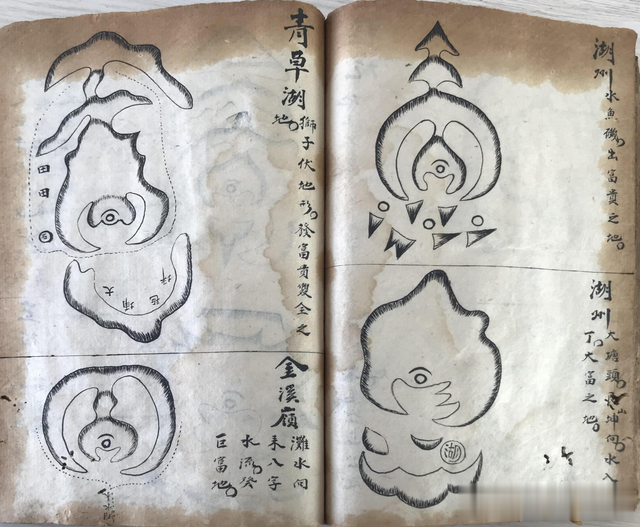 湖州 水魚
出富貴之地
湖州 大塘頭
坤向水入
丁大富之地
湖
青草湖 獅子伏地形發富貴雙全之
地
田田
金溪嶺 灘水向
來八字
水流癸
巨富地